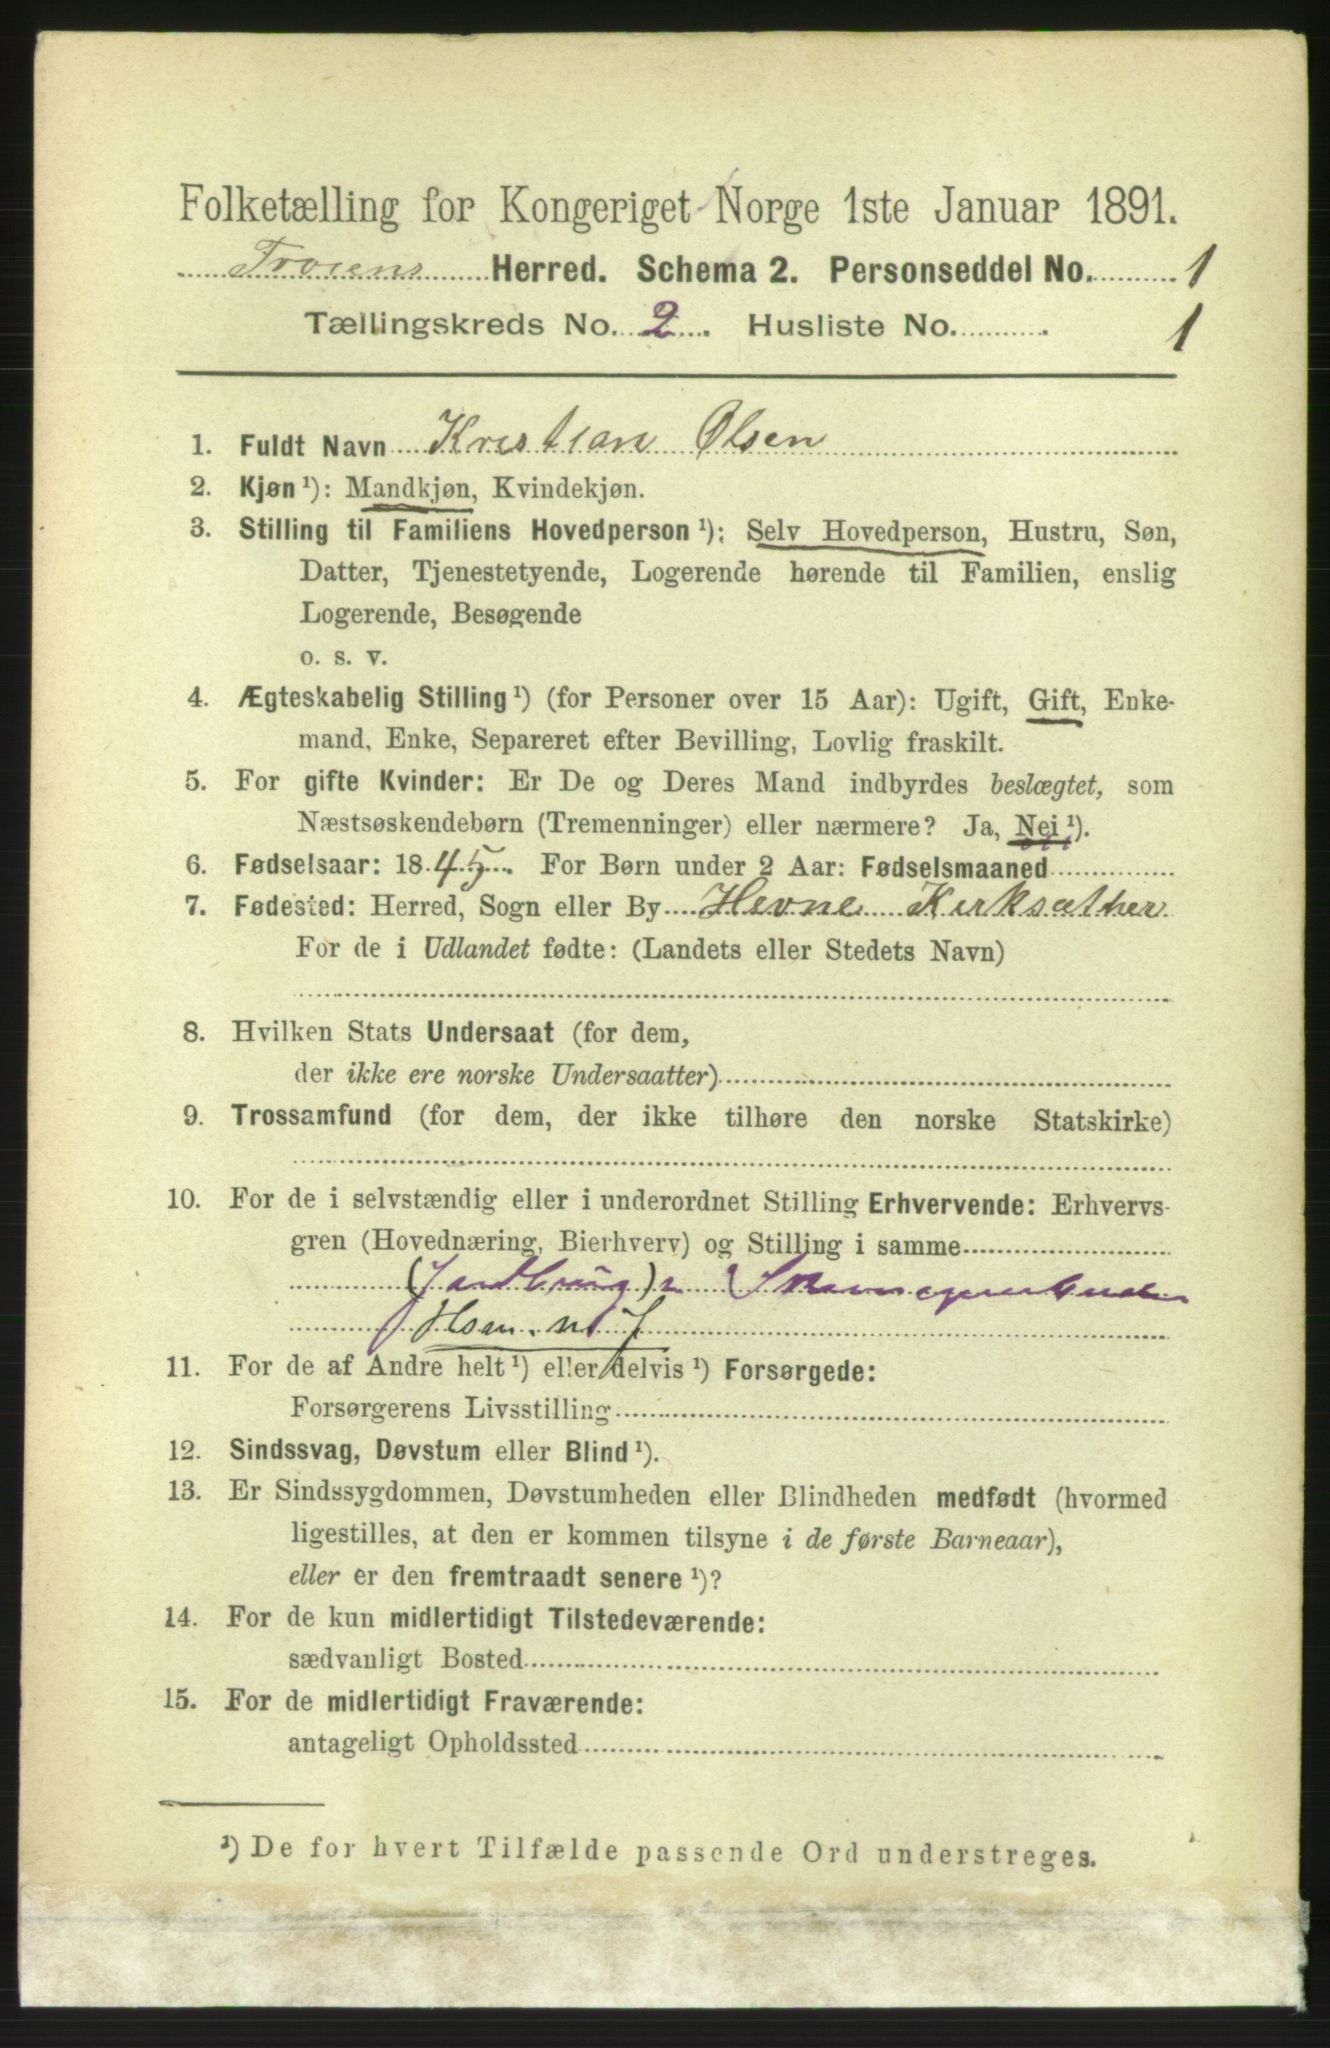 Folketælling for Kongeriget Norge 1ste Januar 1891.
Herred. Schema 2. Personseddel No. 1
Tællingskreds No. 2. Husliste No. 1
1. Fuldt Navn Kristian Olsen
2. Kjøn ¹): Mandkjøn, Kvindekjøn.
3. Stilling til Familiens Hovedperson ¹): Selv Hovedperson, Hustru, Søn,
Datter, Tjenestetyende, Logerende hørende til Familien, enslig
Logerende, Besøgende
o. s. v.
4. Ægteskabelig Stilling ¹) (for Personer over 15 Aar): Ugift, Gift, Enke-
mand, Enke, Separeret efter Bevilling, Lovlig fraskilt.
5. For gifte Kvinder: Er De og Deres Mand indbyrdes beslægtet, som
Næstsøskendebørn (Tremenninger) eller nærmere? Ja, Nei ¹).
6. Fødselsaar: 1845. For Børn under 2 Aar: Fødselsmaaned
7. Fødested: Herred, Sogn eller By Hevne Kirksæther
For de i Udlandet fødte: (Landets eller Stedets Navn)
8. Hvilken Stats Undersaat (for dem,
der ikke ere norske Undersaatter)
9. Trossamfund (for dem, der ikke tilhøre den norske Statskirke)
10. For de i selvstændig eller i underordnet Stilling Erhvervende: Erhvervs-
gren (Hovednæring, Bierhverv) og Stilling i samme
11. For de af Andre helt ¹) eller delvis ¹) Forsørgede:
Forsørgerens Livsstilling
12. Sindssvag, Døvstum eller Blind ¹).
13. Er Sindssygdommen, Døvstumheden eller Blindheden medfødt (hvormed
ligestilles, at den er kommen tilsyne i de første Barneaar),
eller er den fremtraadt senere ¹)?
14. For de kun midlertidigt Tilstedeværende:
sædvanligt Bosted
15. For de midlertidigt Fraværende:
antageligt Opholdssted
¹) De for hvert Tilfælde passende Ord understreges.